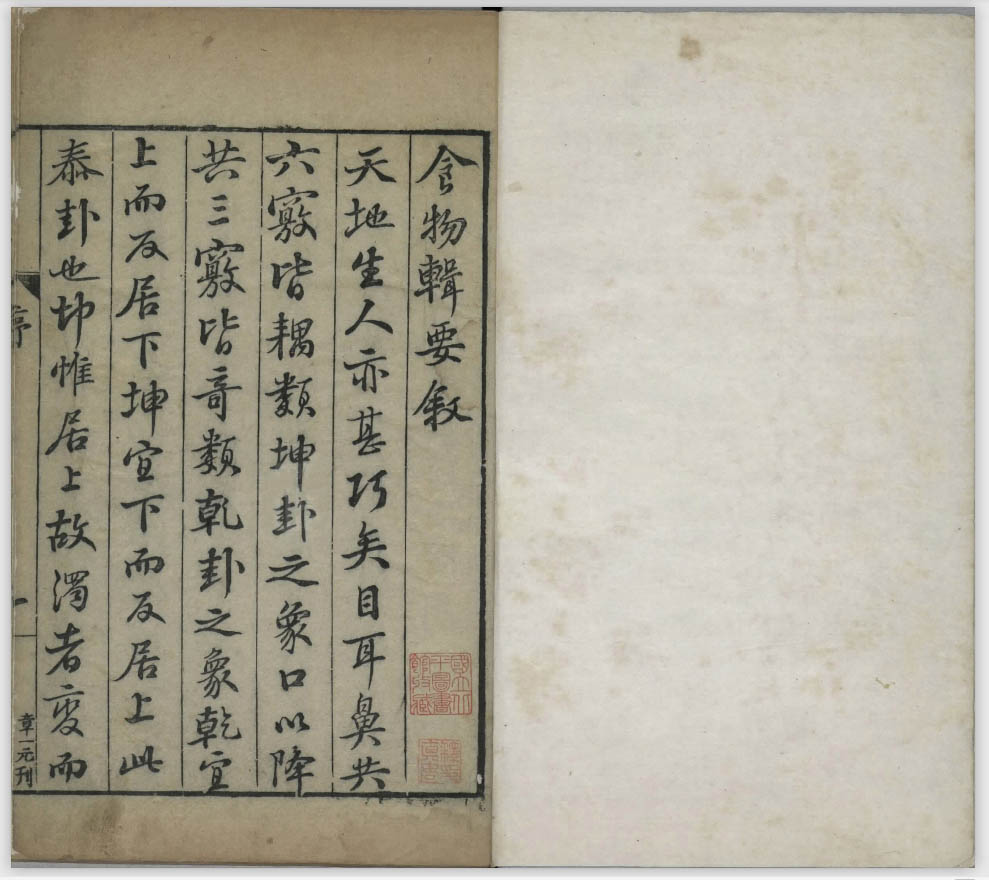 食物輯要敘
天地生人亦甚巧矣目耳鼻共
六竅皆耦類坤卦之象口以降
共三竅皆奇類乾卦之象乾宜
上而反居下坤宜下而反居上此
泰卦也坤惟居上故濁者變而
序
一
章一元刊
國立北
平圖書
館收藏